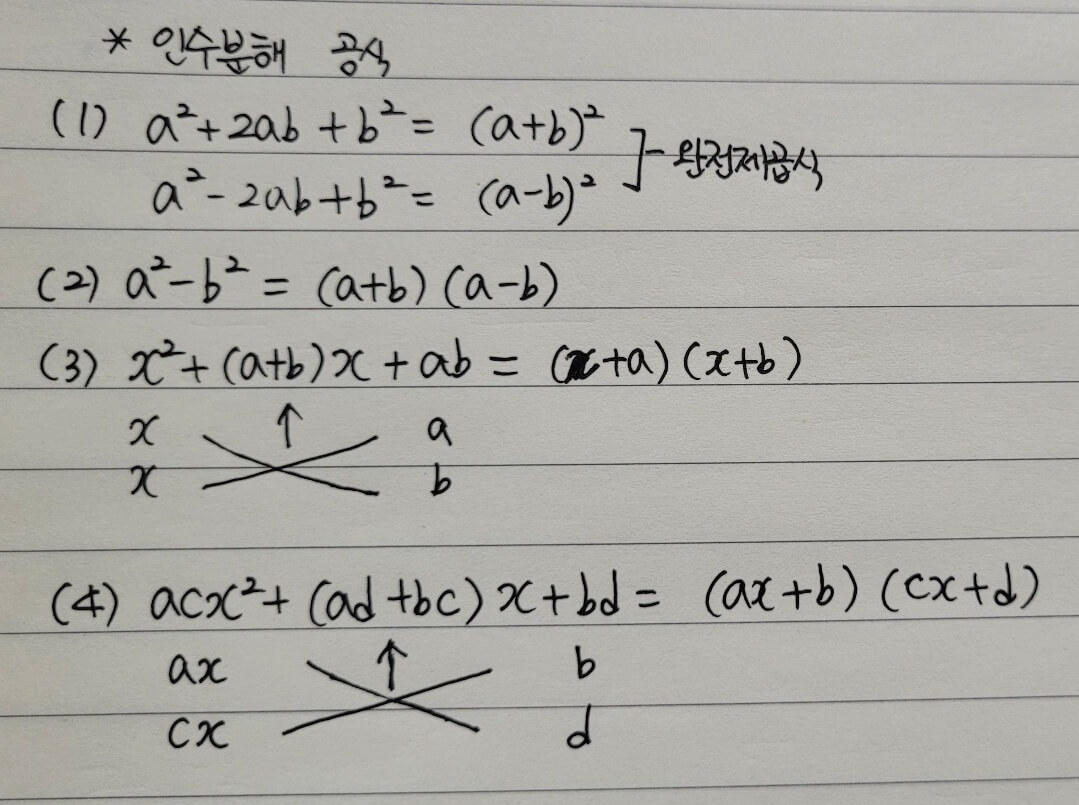 * 인수분해 공식
(1) a²+2ab+b²= (a+b)²
a²-2ab+b²= (a-b)² ]- 완전제곱식
(2) a²-b² = (a+b)(a-b)
(3) x²+(a+b)x+ab = (x+a)(x+b)
x ↑ a
x b
(4) acx²+(ad+bc)x+bd = (ax+b)(cx+d)
ax ↑ b
cx d